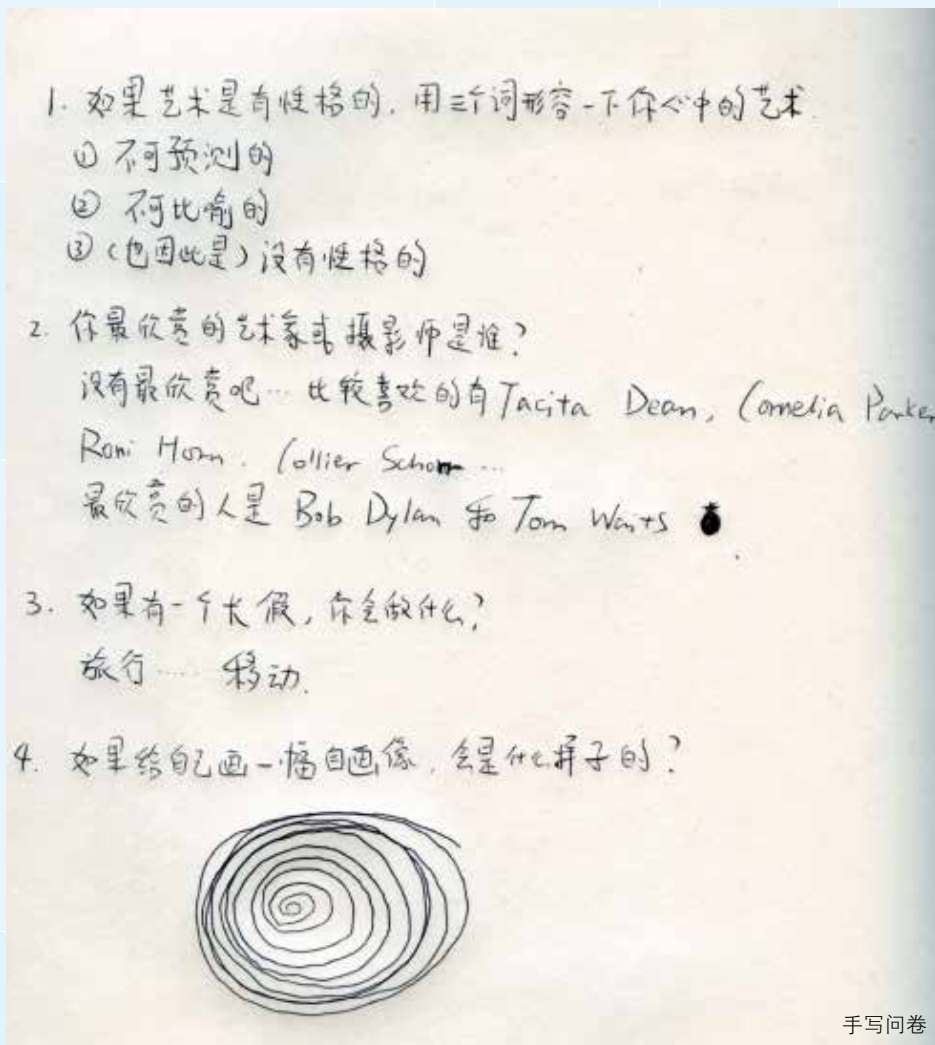 1. 如果艺术是有性格的, 用三个词形容一下你心中的艺术.
① 不可预测的
② 不可比喻的
③ (也因此是) 没有性格的
2. 你最欣赏的艺术家或摄影师是谁?
没有最欣赏吧… 比较喜欢的有 Tacita Dean, Cornelia Parker
Roni Horn. Collier Schorr …
最欣赏的人是 Bob Dylan 和 Tom Waits
3. 如果有一个长假, 你会做什么?
旅行…… 移动.
4. 如果给自己画一幅自画像, 会是什么样子的?
手写问卷